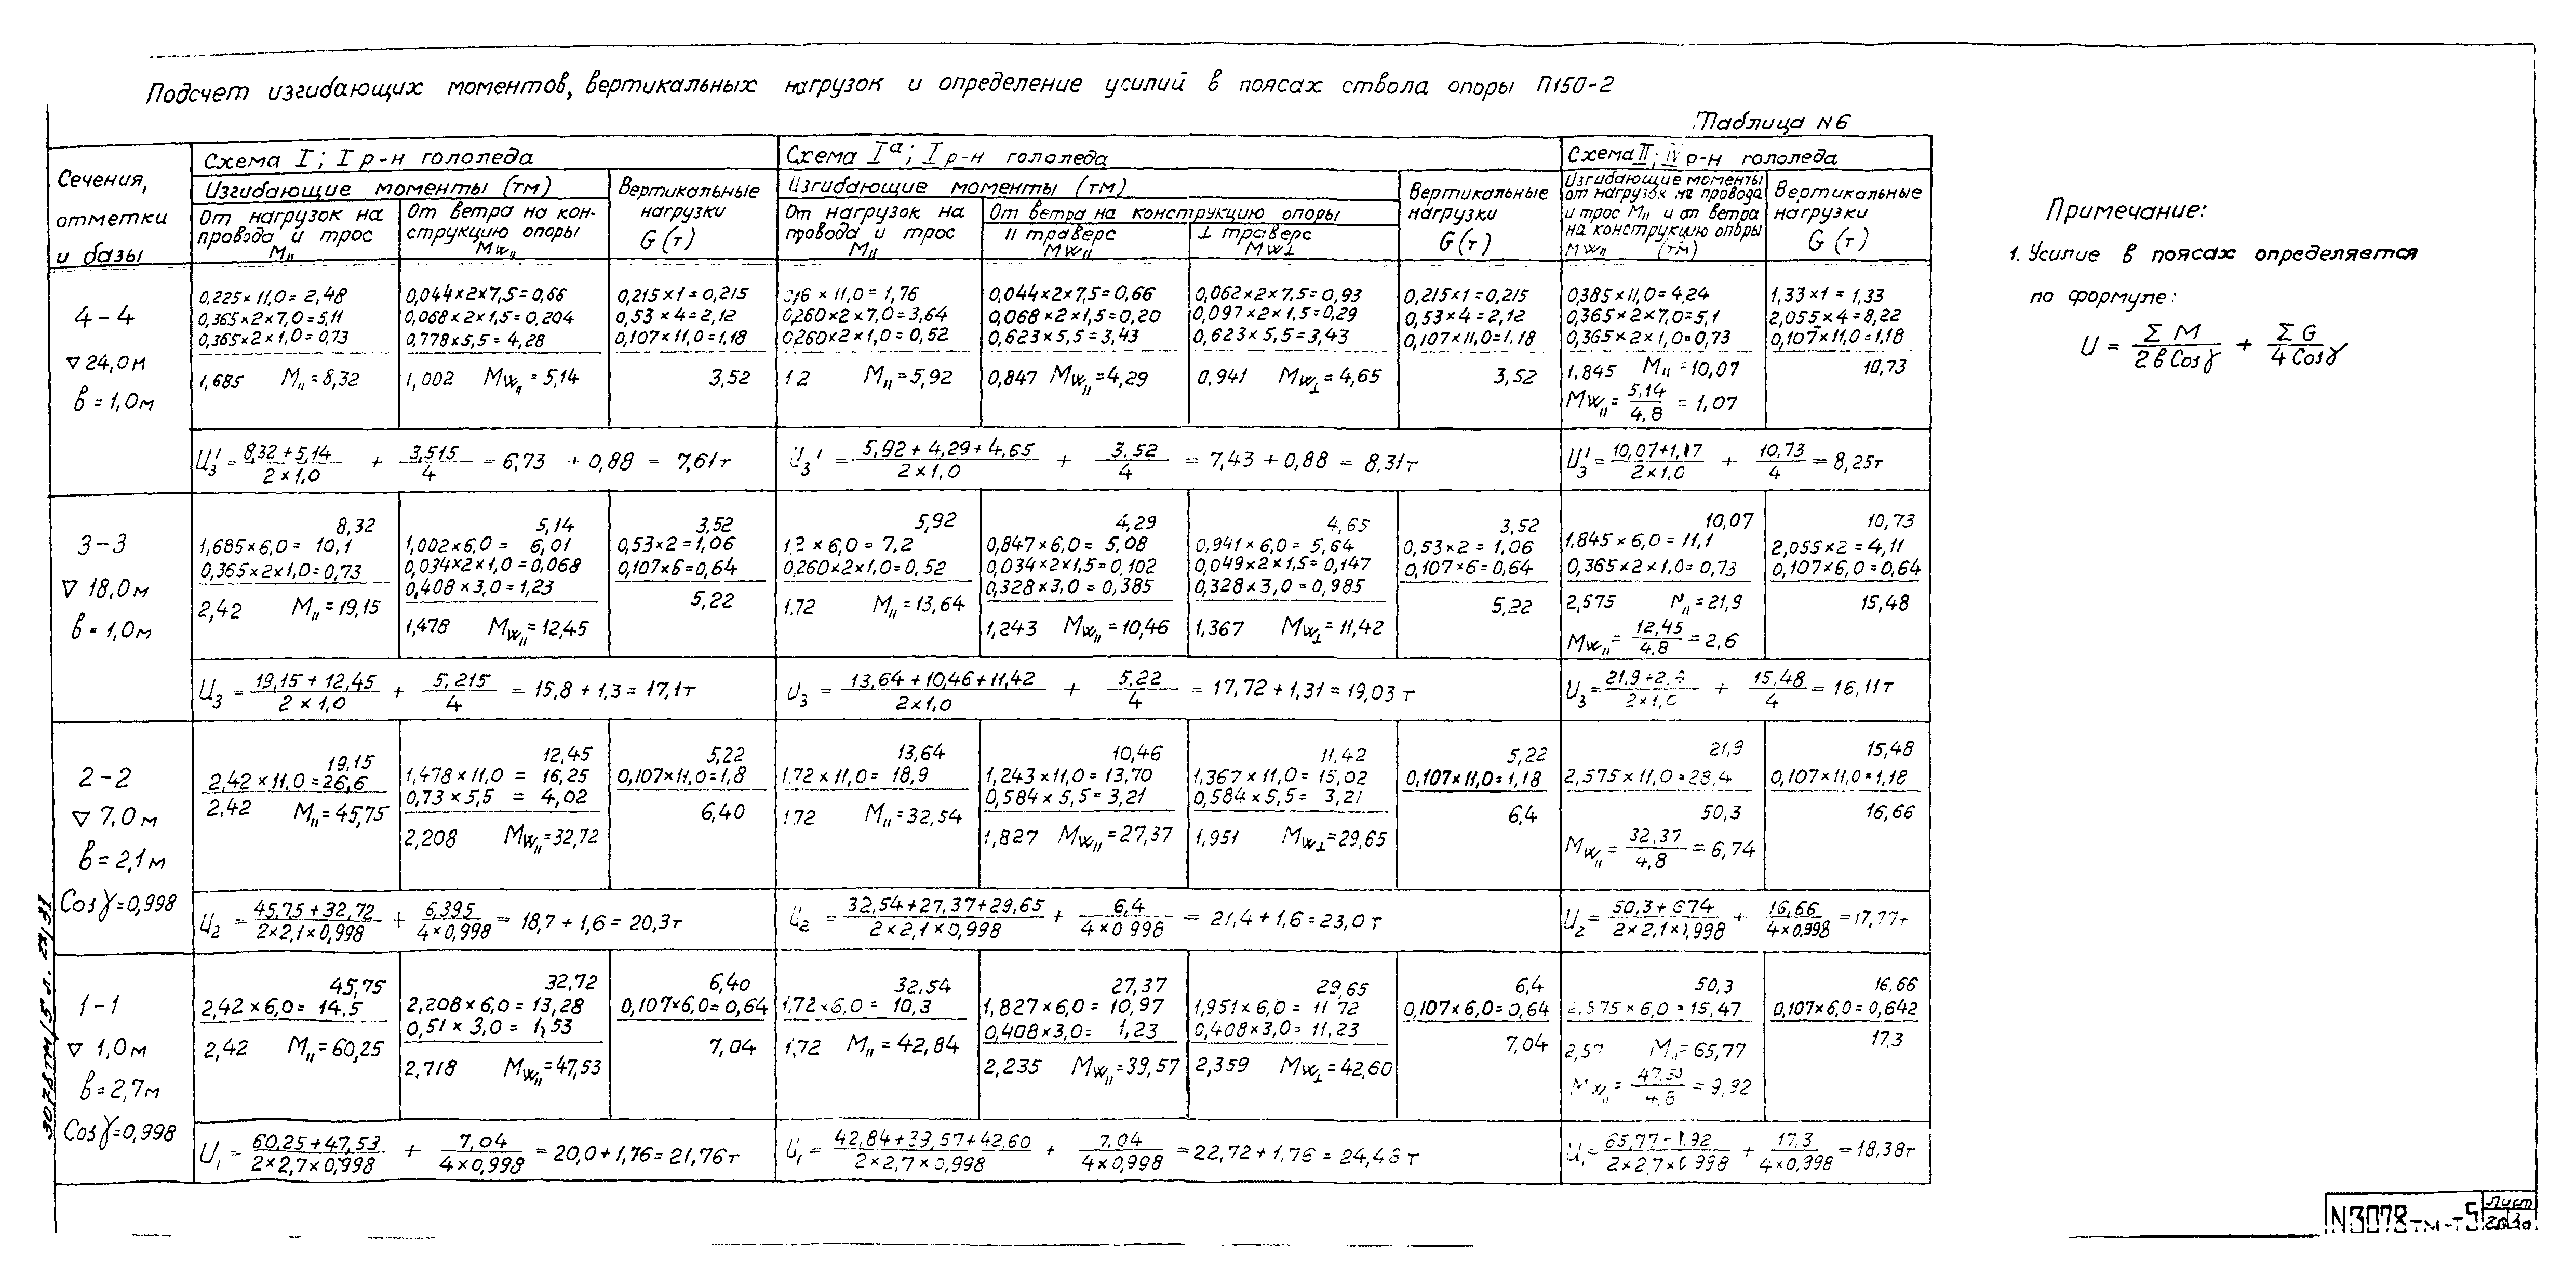 Подсчет изгибающих моментов, вертикальных нагрузок и определение усилий в поясах ствола опоры П150-2
Таблица N6
Сечения, отметки и базы
Схема I; I р-н гололеда
Изгибающие моменты (тм)
От нагрузок на провода и трос M||
От ветра на конструкцию опоры MW||
Вертикальные нагрузки G (т)
Схема Iа; I р-н гололеда
Изгибающие моменты (тм)
От нагрузок на провода и трос M||
От ветра на конструкцию опоры
|| траверс MW||
⊥ траверс MW⊥
Вертикальные нагрузки G (т)
Схема II; IV р-н гололеда
Изгибающие моменты от нагрузок на провода и трос M|| и от ветра на конструкцию опоры MW|| (тм)
Вертикальные нагрузки G (т)
4-4
▽24,0м
в=1,0м
0,225×11,0=2,48
0,365×2×7,0=5,11
0,365×2×1,0=0,73
1,685 M||=8,32
0,044×2×7,5=0,66
0,068×2×1,5=0,204
0,778×5,5=4,28
1,002 MW||=5,14
0,215×1=0,215
0,53×4=2,12
0,107×11,0=1,18
3,52
16×11,0=1,76
0,260×2×7,0=3,64
0,260×2×1,0=0,52
12 M||=5,92
0,044×2×7,5=0,66
0,068×2×1,5=0,20
0,623×5,5=3,43
0,847 MW||=4,29
0,062×2×7,5=0,93
0,097×2×1,5=0,29
0,623×5,5=3,43
0,941 MW⊥=4,65
0,215×1=0,215
0,53×4=2,12
0,107×11,0=1,18
3,52
0,385×11,0=4,24
0,365×2×7,0=5,1
0,365×2×1,0=0,73
1,845 M||=10,07
MW||= 5,14/4,8 = 1,07
1,33×1=1,33
2,055×4=8,22
0,107×11,0=1,18
10,73
U₃'= (8,32+5,14)/(2×1,0) + 3,515/4 = 6,73 + 0,88 = 7,61т
U₃'= (5,92+4,29+4,65)/(2×1,0) + 3,52/4 = 7,43+0,88 = 8,31т
U₃'= (10,07+1,07)/(2×1,0) + 10,73/4 = 8,25т
3-3
▽ 18,0м
в=1,0м
8,32
1,685×6,0= 10,1
0,365×2×1,0=0,73
2,42 M||=19,15
5,14
1,002×6,0= 6,01
0,034×2×1,0=0,068
0,408×3,0=1,23
1,478 MW||=12,45
3,52
0,53×2=1,06
0,107×6=0,64
5,22
5,92
1,2×6,0=7,2
0,260×2×1,0=0,52
1,72 M||=13,64
4,29
0,847×6,0= 5,08
0,034×2×1,5=0,102
0,328×3,0=0,385
1,243 MW||=10,46
4,65
0,941×6,0= 5,64
0,049×2×1,5=0,147
0,328×3,0=0,985
1,367 MW⊥=11,42
3,52
0,53×2=1,06
0,107×6=0,64
5,22
10,07
1,845×6,0=11,1
0,365×2×1,0=0,73
2,575 M||=21,9
MW||= 12,45/4,8 = 2,6
10,73
2,055×2=4,11
0,107×6,0=0,64
15,48
U₃= (19,15+12,45)/(2×1,0) + 5,215/4 = 15,8+1,3=17,1т
U₃= (13,64+10,46+11,42)/(2×1,0) + 5,22/4 = 17,72+1,31=19,03т
U₃= (21,9+2,6)/(2×1,0) + 15,48/4 = 16,11т
2-2
▽ 7,0м
в=2,1м
Cosγ=0,998
19,15
2,42×11,0=26,6
2,42 M||=45,75
12,45
1,478×11,0 = 16,25
0,73×5,5 = 4,02
2,208 MW||=32,72
5,22
0,107×11,0=1,8
6,40
13,64
1,72×11,0= 18,9
1,72 M||=32,54
10,46
1,243×11,0=13,70
0,584×5,5=3,21
1,827 MW||=27,37
11,42
1,367×11,0=15,02
0,584×5,5= 3,21
1,951 MW⊥=29,65
5,22
0,107×11,0=1,18
6,4
21,9
2,575×11,0=28,4
50,3
MW||= 32,37/4,8 = 6,74
15,48
0,107×11,0=1,18
16,66
U₂= (45,75+32,72)/(2×2,1×0,998) + 6,395/(4×0,998) = 18,7+1,6=20,3т
U₂= (32,54+27,37+29,65)/(2×2,1×0,998) + 6,4/(4×0,998) = 21,4+1,6=23,0т
U₂= (50,3+6,74)/(2×2,1×0,998) + 16,66/(4×0,998) =17,77т
1-1
▽ 1,0м
в=2,7м
Cosγ=0,998
45,75
2,42×6,0= 14,5
2,42 M||=60,25
32,72
2,208×6,0=13,28
0,51×3,0= 1,53
2,718 MW||=47,53
6,40
0,107×6,0=0,64
7,04
32,54
1,72×6,0= 10,3
1,72 M||=42,84
27,37
1,827×6,0=10,97
0,408×3,0= 1,23
2,235 MW||=39,57
29,65
1,951×6,0= 11,72
0,408×3,0= 11,23
2,359 MW⊥=42,60
6,4
0,107×6,0=0,64
7,04
50,3
2,575×6,0=15,47
2,57 M||=65,77
= 9,92
16,66
0,107×6,0=0,642
17,3
U₁= (60,25+47,53)/(2×2,7×0,998) + 7,04/(4×0,998) = 20,0+1,76=21,76т
U₁= (42,84+39,57+42,60)/(2×2,7×0,998) + 7,04/(4×0,998) =22,72+1,76=24,48т
(2×2,7×0,998) + 17,3/(4×0,998) =18,38т
Примечание:
1. Усилие в поясах определяется
по формуле:
U = ΣM/(2вCosγ) + ΣG/(4Cosγ)
3078тм/5 л.
N3078тм-т5
Лист